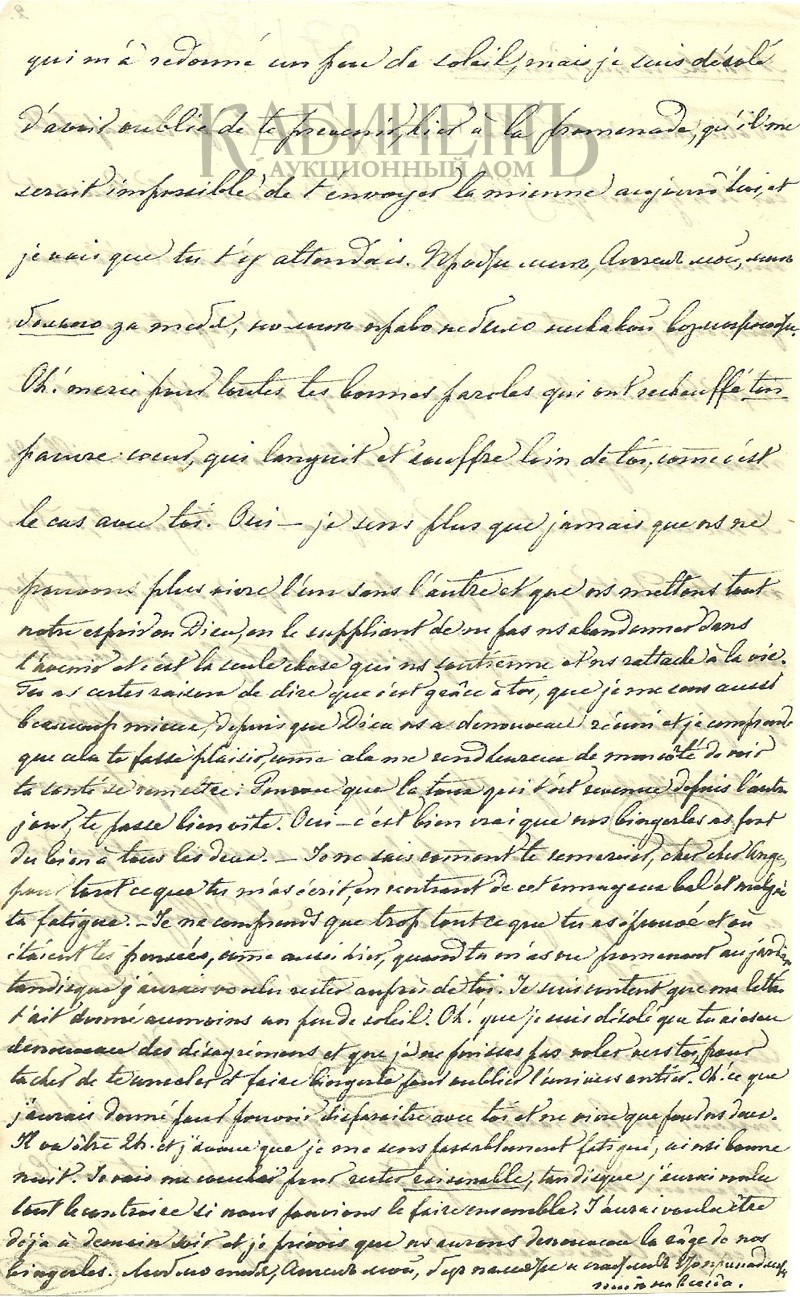 qui m'a redonné un peu de soleil, mais je suis désolé
КАБИНЕТЪ
АУКЦИОННЫЙ ДОМ
d'avoir oublié de te prevenir, hier à la promenade, qu'il me
serait impossible de t'envoyer la mienne aujourd'hui, et
je vais que tu t'y attendais. Прости мит, Ангелъ мой, мит
больно за тебя, но мит право небыло никакой возможности.
Oh! merci pour toutes tes bonnes paroles qui ont rechauffé ton
pauvre coeur, qui languit et souffre loin de toi, come c'est
le cas avec toi. Oui – je sens plus que jamais que ns ne
pouvons plus vivre l'un sans l'autre et que ns mettons tout
notre espoir en Dieu, en le suppliant de ne pas ns abandonner dans
l'avenir et c'est la seule chose qui ns soutienne et ns rattache à la vie.
Tu as certes raison de dire que c'est grâce à toi, que je me sens aussi
beaucoup mieux, depuis que Dieu ns a denouveau réuni et je comprends
que cela te fasse plaisir, come cela me rend heureux de mon côté de voir
ta santé se remettre. Pourvu que la toux qui t'est revenue depuis l'autre
jour, te passe bien vite. Oui – c'est bien vrai que nos bingerles ns font
du bien à tous les deux. – Je ne sais coment te remercier, cher cher Ange,
pour tout ce que tu m'as écrit, en rentrant de cet ennuyeux bal et malgré
ta fatigue. – Je ne comprends que trop tout ce que tu as éprouvé et où
étaient tes pensées, come aussi hier, quand tu m'as vu promenant au jardin
tandisque j'aurais voulu rester auprès de toi. Je suis content que ma lettre
t'ait donné aumoins un peu de soleil. Oh! que je suis désolé que tu aies eu
denouveau des désagrémens et que je ne puisse pas voler vers toi, pour
tacher de te consoler et faire bingerle pour oublier l'univers entier. Oh! ce que
j'aurais donné pour pouvoir disparaitre avec toi et ne vivre que pour ns deux.
Il va être 2h. et j'avoue que je me sens passablement fatigué, ainsi bonne
nuit. Je vais me coucher pour rester raisonable, tandisque j'aurai voulu
tout le contraire si nous pouvions le faire ensemble. J'aurai voulu être
déjà à demain soir et je prévois que ns aurons denouveau la râge de nos
bingerles. Люблю тебя, Ангелъ мой,